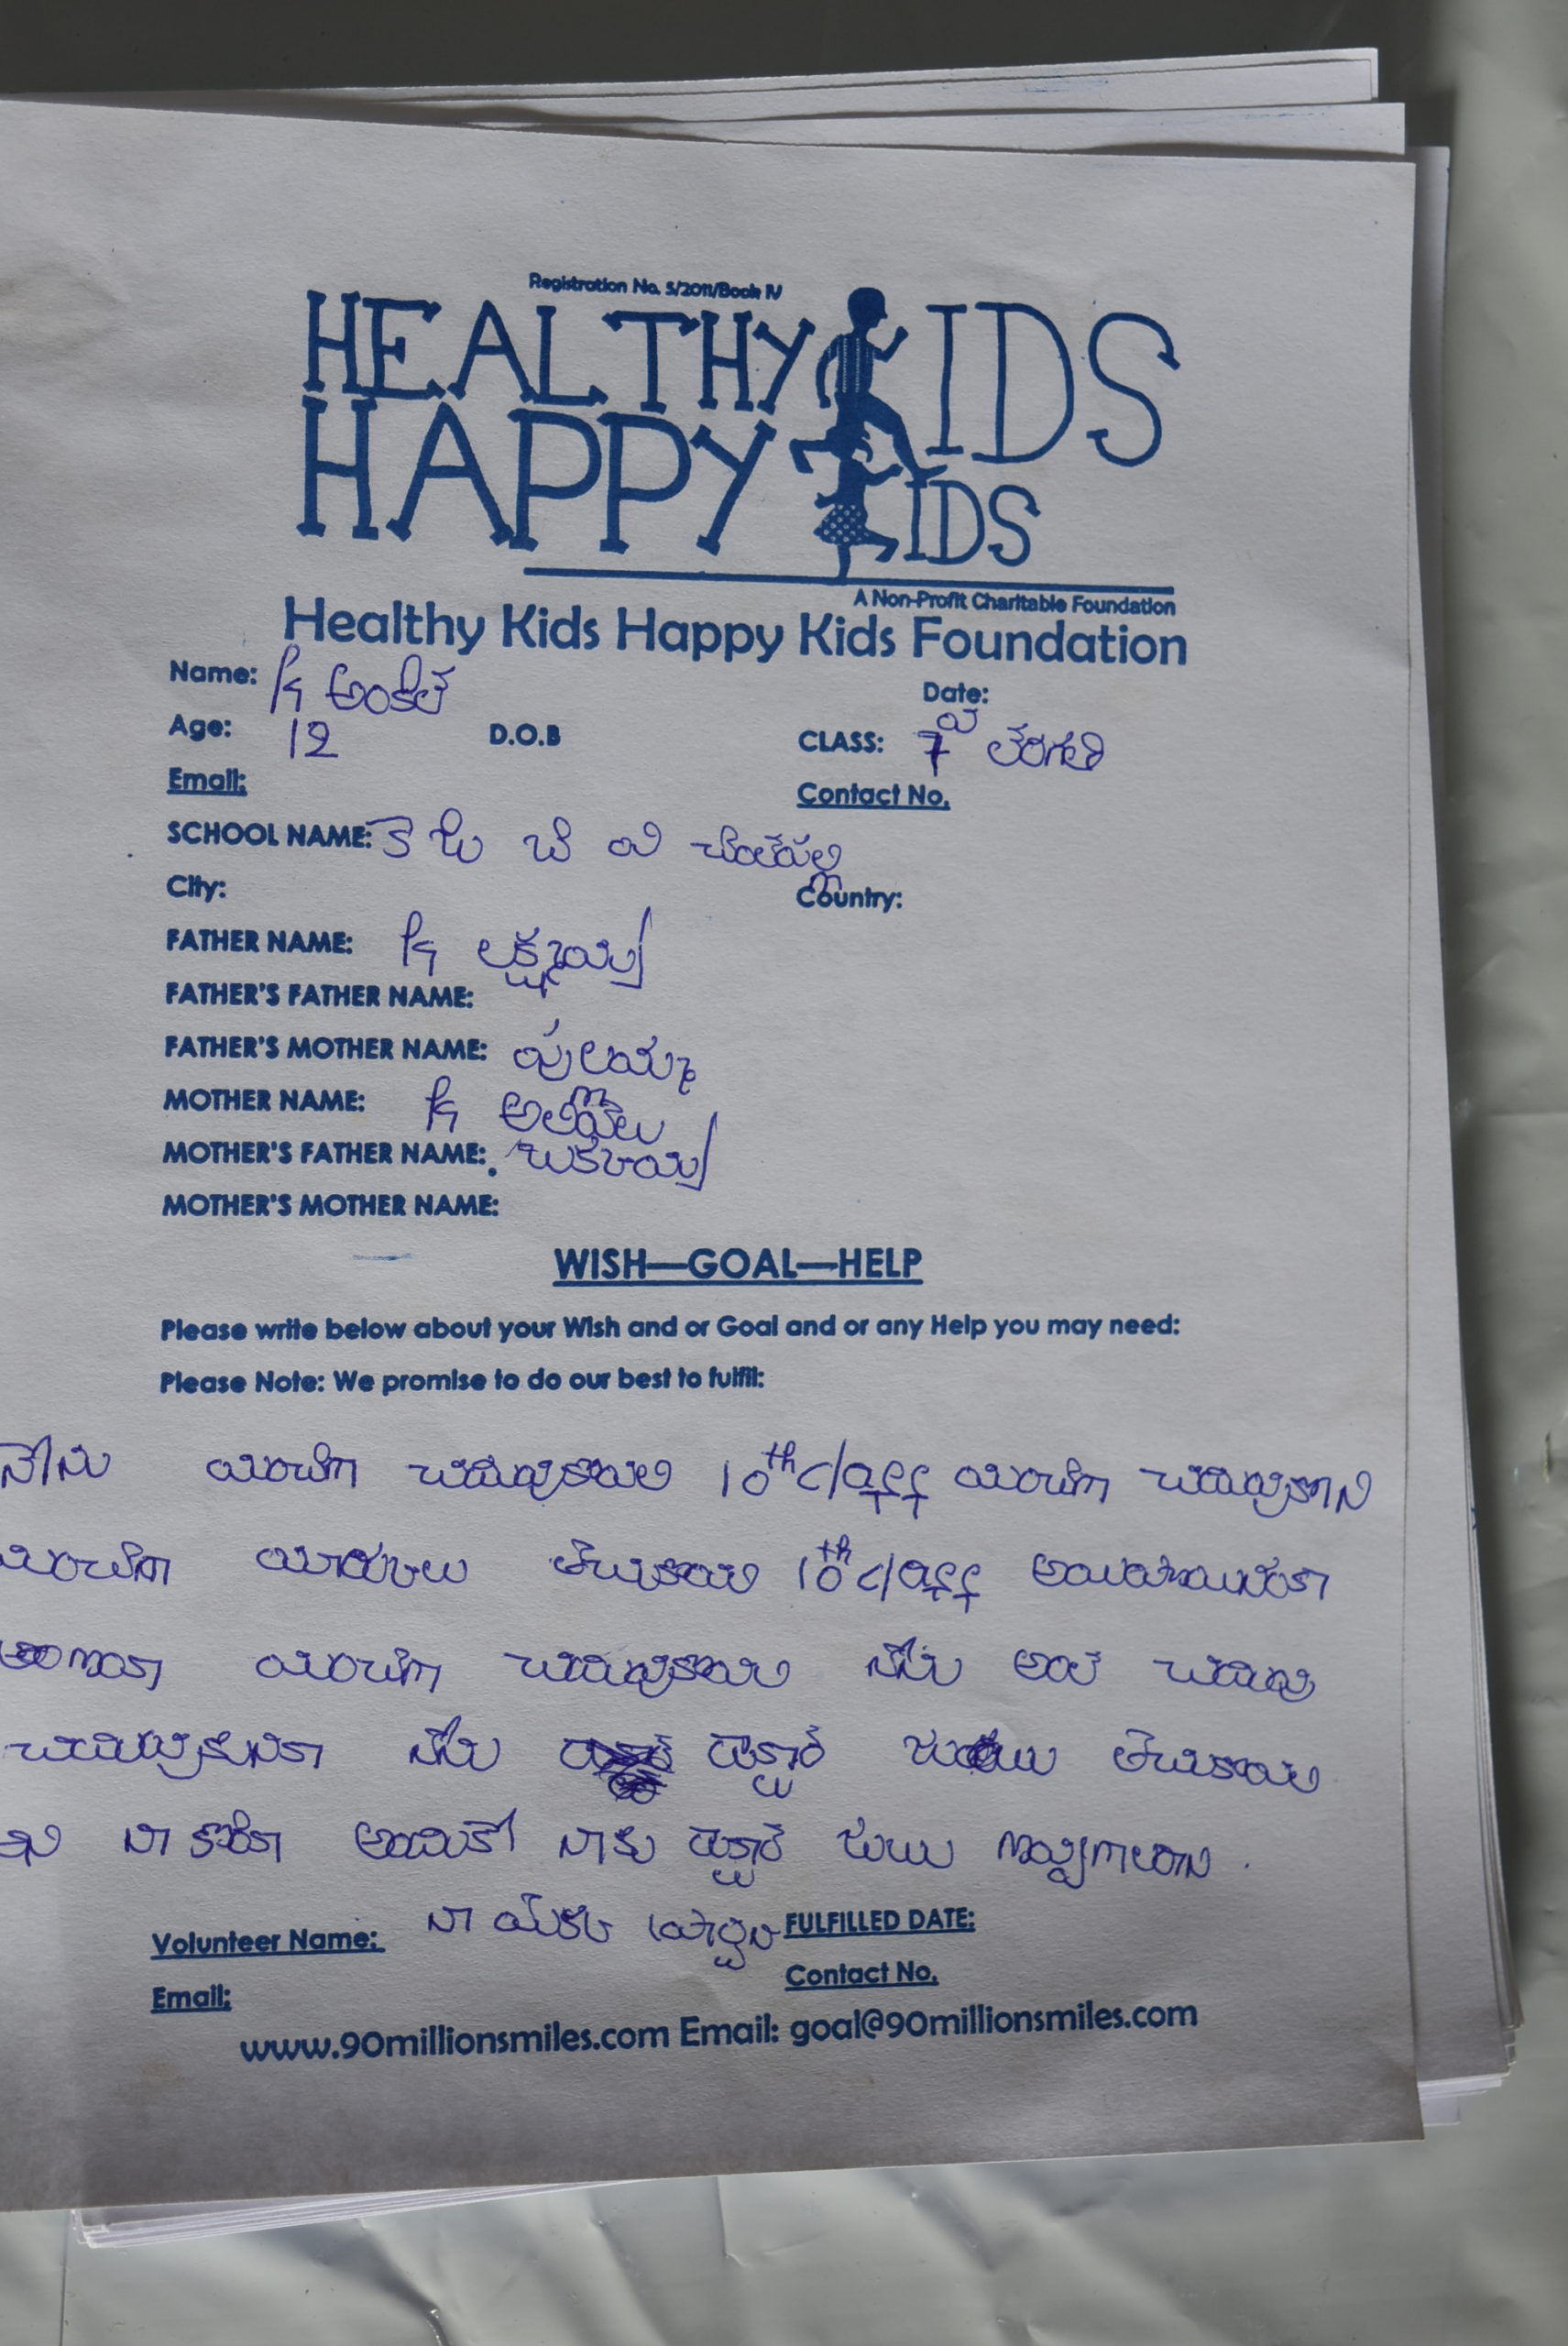 Registration No. 5/2011/Book IV
HEALTHY KIDS
HAPPY KIDS
A Non-Profit Charitable Foundation
Healthy Kids Happy Kids Foundation
Name: K అంకిత
Date:
Age: 12 D.O.B CLASS: 7 వ తరగతి
Email: Contact No.
SCHOOL NAME: కె జి బి వి
City: Country:
FATHER NAME: K లక్ష్మయ్య
FATHER'S FATHER NAME:
FATHER'S MOTHER NAME: పులమ్మ
MOTHER NAME: K అలివేలు
MOTHER'S FATHER NAME:
MOTHER'S MOTHER NAME:
WISH—GOAL—HELP
Please write below about your Wish and or Goal and or any Help you may need:
Please Note: We promise to do our best to fulfil:
నేను మంచిగా చదువుకోవాలి 10th class మంచిగా చదువుకొని
మంచిగా మార్కులు తెచుకోవాలి 10th class అయిపోయినంక
మంచిగా చదువుకోవాలి నేను అలా చదువు
చదువుకున్నాక నేను డాక్టర్ జాబు తెచుకోవాలి
అని నా కోరిక అందుకే నాకు డాక్టర్ జాబు
Volunteer Name: నా యొక్క ప్రార్థన FULFILLED DATE:
Email: Contact No.
www.90millionsmiles.com Email: goal@90millionsmiles.com